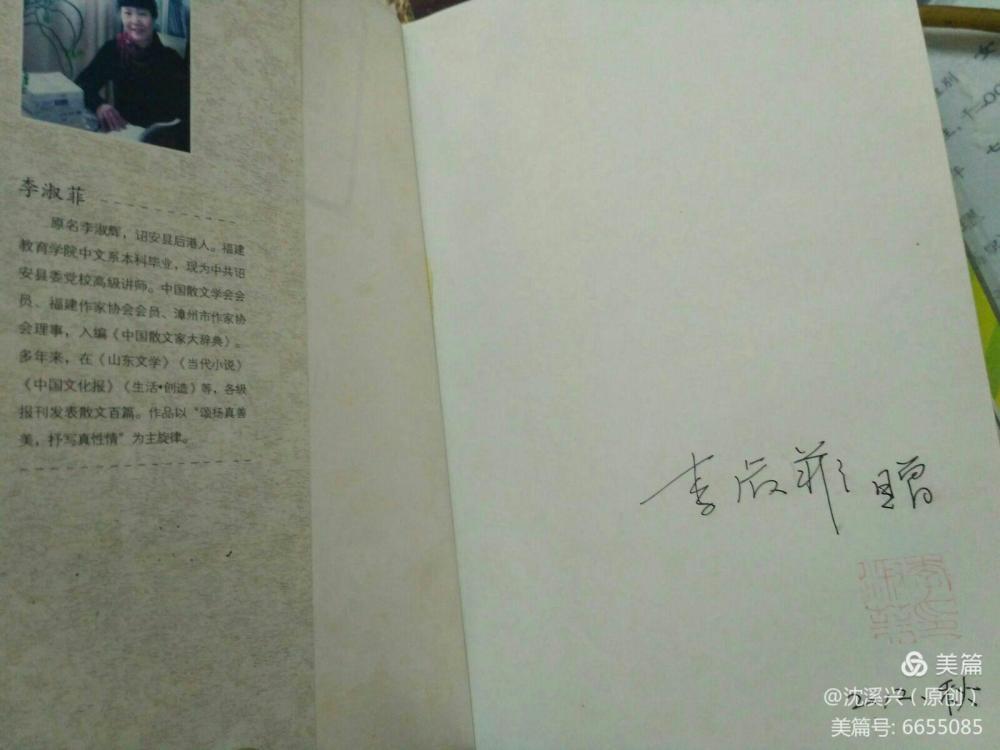 李淑菲
原名李淑辉，诏安县后港人。福建
教育学院中文系本科毕业，现为中共诏
安县委党校高级讲师。中国散文学会会
员、福建作家协会会员、漳州市作家协
会理事，入编《中国散文家大辞典》。
多年来，在《山东文学》《当代小说》
《中国文化报》《生活•创造》等，各级
报刊发表散文百篇。作品以“颂扬真善
美，抒写真性情”为主旋律。
李淑菲 赠
秋
美篇
@沈溪兴（原创）
美篇号: 6655085